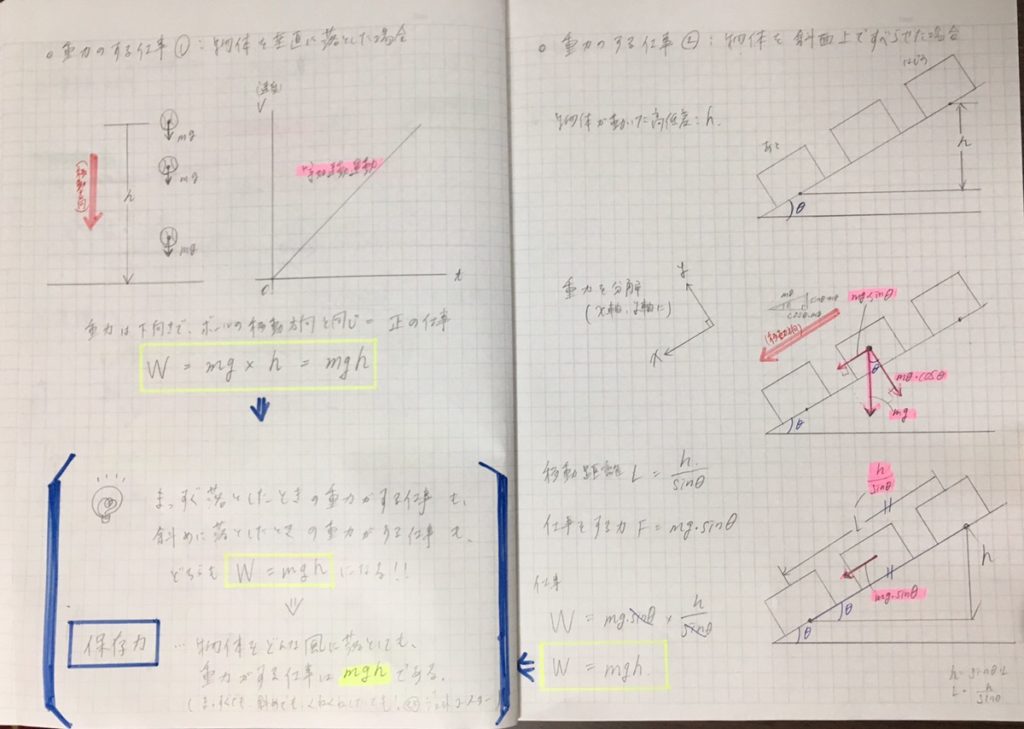 ○ 重力のする仕事①：物体を垂直に落とした場合
(速度)
V
mg
mg
mg
h
(移動方向)
等加速度運動
O
t
重力は下向きで、ボールの移動方向と同じ＝正の仕事
W = mg × h = mgh
まっすぐ落としたときの重力がする仕事も、
斜めに落としたときの重力がする仕事も、
どちらも W = mgh になる!!
保存力
…物体をどんな風に落としても、
重力がする仕事は mgh である。
○ 重力のする仕事②：物体を斜面上ですべらせた場合
物体が動いた高低差：h
はじめ
あと
h
θ
重力を分解
(x軸、y軸に)
y
x
(移動方向)
mg・sinθ
θ
mg・cosθ
mg
θ
移動距離 L = h/sinθ
h/sinθ
L
仕事をする力 F = mg・sinθ
h
mg・sinθ
θ
θ
仕事
W = mg・sinθ × h/sinθ
W = mgh
h = sinθ・L
L = h/sinθ